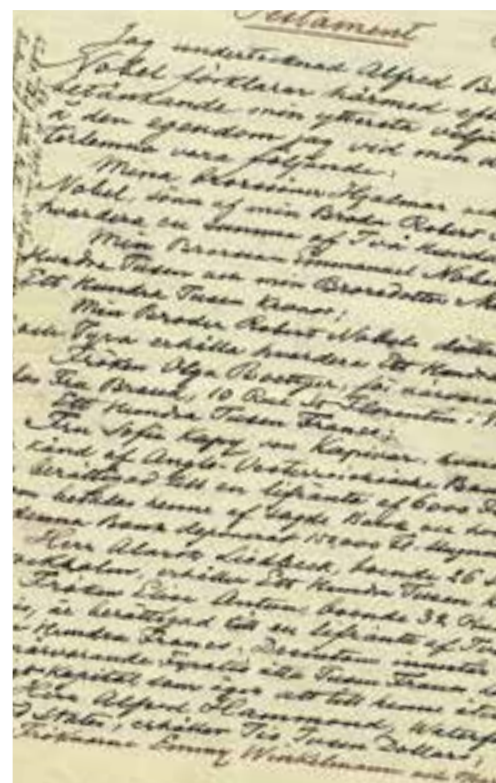 Testament
Jag undertecknad Alfred Be
Nobel förklarar härmed efte
betänkande min yttersta vilja
å den egendom jag vid min d
terlemna vara följande:
Mina Brorsöner Hjalmar och
Nobel, söner af min Broder Robert
hvardera en summa af Två Hundr
Min Brorson Emmanuel Nobel
Hundra Tusen och min Brorsdotter M
Ett Hundra Tusen Kronor;
Min Broder Robert Nobels döttr
Tyra erhålla hvardera Ett Hundra
Fröken Olga Boettger, för närvara
Fru Brand, 10 Rue St Florentin i P
Ett Hundra Tusen Francs;
Fru Sofie Kapy von Kapivar, hvar
känd af Anglo-Oesterreichische Ban
berättigad till en lifränta af 6000 F
betalas henne af sagde Bank
denna Bank deponerat 150.000 Fl.
Herr Alarik Liedbeck, boende 26 S
ockholm, erhåller Ett Hundra Tusen
Fröken Elise Antun, boende 32 Rue
is, är berättigad till en lifränta af
Hundra Francs. Dessutom innestår
närvarande Fyratio åtta Tusen Francs
kapital som äro att till henne åter
Herr Alfred Hammond, Waterf
States, erhåller Tio Tusen Dollars;
Fröknarna Emmy Winkelmann